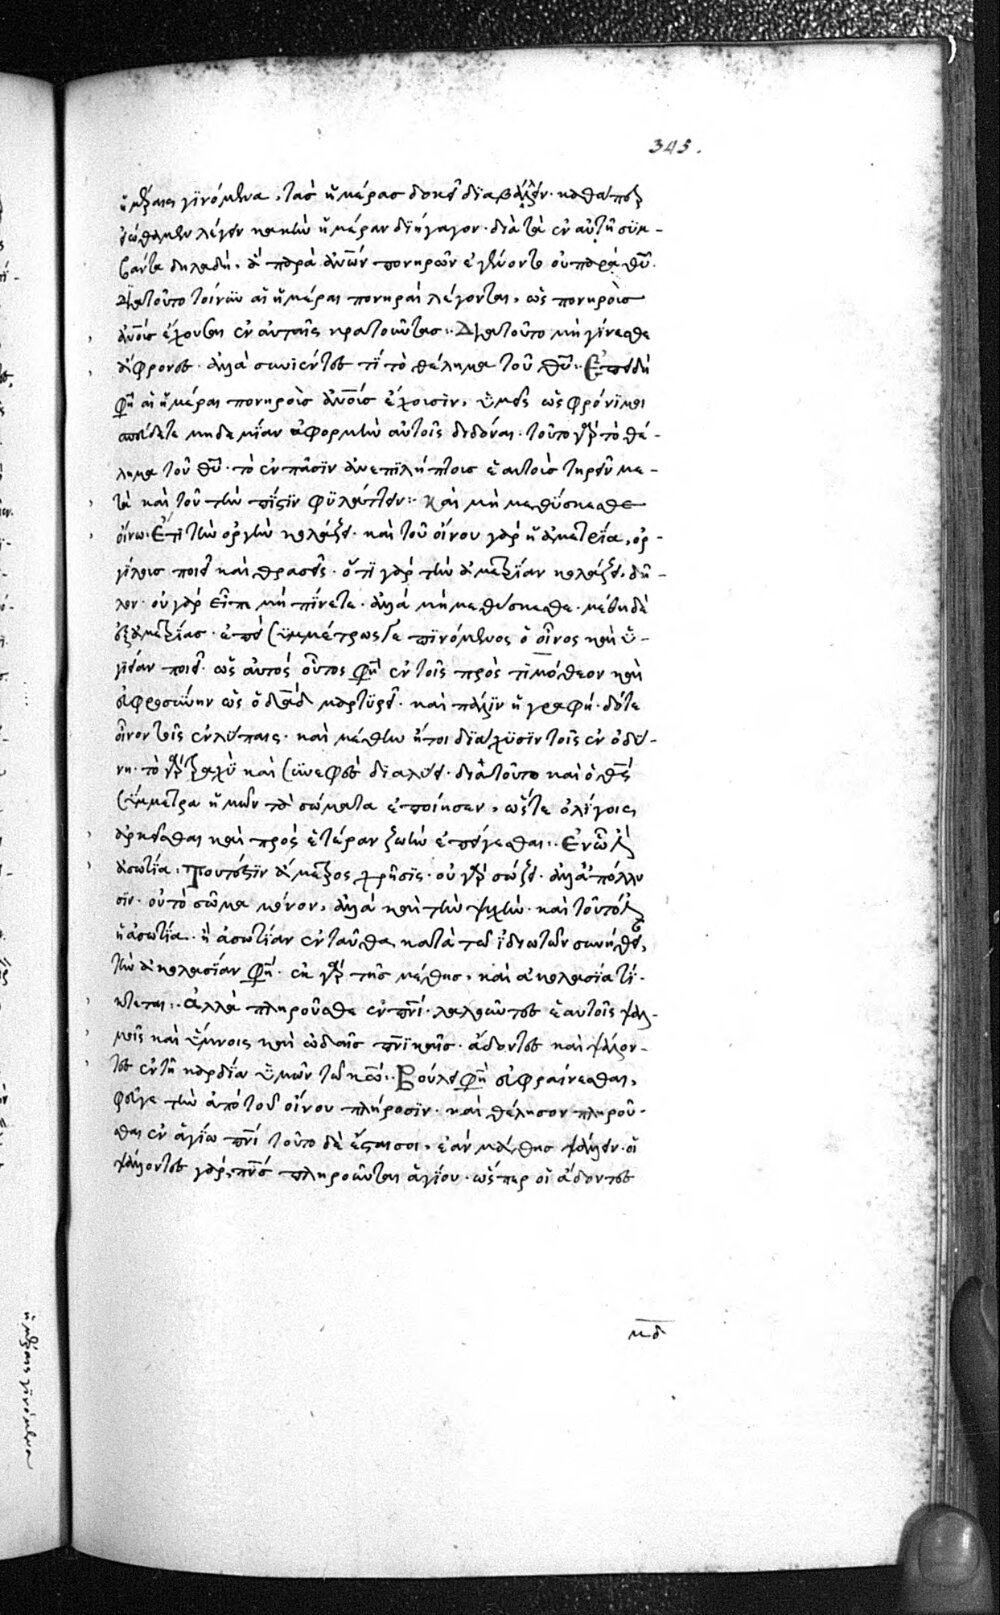 345.
ἡμέραις γινόμενα, τὰς ἡμέρας δοκεῖ διαβάλλειν· καθάπερ
εἰώθαμεν λέγειν κακὴν ἡμέραν διήγαγον· διὰ τὰ ἐν αὐτῇ συμ-
βάντα δηλαδή, ἃ παρὰ ἀνων πονηρῶν ἐγένοντο οὐ παρὰ θυ.
Διατοῦτο τοίνυν αἱ ἡμέραι πονηραὶ λέγονται, ὡς πονηροὶς
ἀνοις ἔχουσαι ἐν αὐταῖς κρατοῦντας: Διατοῦτο μὴ γίνεσθε
ἄφρονες· ἀλλὰ συνιέντες τί τὸ θέλημα τοῦ θυ: Ἐπειδὴ
φη αἱ ἡμέραι πονηροὶς ἀνοις ἔχουσιν, ὑμεῖς ὡς φρόνιμοι
σπεύδετε μηδεμίαν ἀφορμὴν αὐτοῖς διδόναι· τοῦτο γὰρ τὸ θέ-
λημα τοῦ θυ· τὸ ἐν πᾶσιν ἀνεπιλήπτοις ἑαυτοὺς τηρεῖν με-
τὰ καὶ τοῦ τὴν πίστιν φυλάττειν: Καὶ μὴ μεθύσκεσθε
οἴνω· Ἐπὶ τὴν ὀργὴν κολάζει· καὶ τοῦ οἴνου γὰρ ἡ ἀμετρία, ὀρ-
γίλους ποιεῖ καὶ θρασεῖς· ὅτι γὰρ τὴν ἀμετρίαν κολάζει, δῆ-
λον· οὐ γὰρ εἶπε μὴ πίνετε· ἀλλὰ μὴ μεθύσκεσθε· μέθη δὲ
ἐξ ἀμετρίας· ἐπεὶ συμμέτρως γε πινόμενος ὁ οἶνος καὶ ὑ-
γίειαν ποιεῖ· ὡς αὐτὸς οὗτος φη ἐν τοῖς πρὸς τιμόθεον καὶ
εὐφροσύνην ὡς ὁ δαδ μαρτυρεῖ· καὶ πάλιν ἡ γραφή· δότε
οἶνον τοῖς ἐν λύπαις· καὶ μέθην ἤτοι διάχυσιν τοῖς ἐν ὀδύ-
νη· τὸ γὰρ τραχὺ καὶ συνεφὲς διαλύει· διατοῦτο καὶ ὁ θς
σύμμετρα ἡμῶν τὰ σώματα ἐποίησεν, ὥστε ὀλίγοις
ἀρκεῖσθαι καὶ πρὸς ἑτέραν ζωὴν ἐπείγεσθαι: Ἐν ᾧ ἐστιν
ἀσωτία· Τουτέστιν ἄμετρος χρῆσις· οὐ γὰρ σώζει· ἀλλ' ἀπόλλυ
σιν· οὐ τὸ σῶμα μόνον, ἀλλὰ καὶ τὴν ψυχήν· καὶ τοῦτό ἐστιν
ἡ ἀσωτία· ἢ ἀσωτίαν ἐνταῦθα κατὰ τὴν ἰδιωτῶν συνήθειαν,
τὴν ἀκολασίαν φη· ἐκ γὰρ τῆς μέθης, καὶ ἀκολασία τί-
κτεται: Ἀλλὰ πληροῦσθε ἐν πνι· λαλοῦντες ἑαυτοῖς ψαλ-
μοῖς καὶ ὕμνοις καὶ ὠδαῖς πνικαῖς· ἄδοντες καὶ ψάλλον-
τες ἐν τῇ καρδία ὑμῶν τῷ κω: Βούλει φη εὐφραίνεσθαι,
φεῦγε τὴν ἀπὸ τοῦ οἴνου πλήρωσιν· καὶ θέλησον πληροῦ-
σθαι ἐν ἁγίω πνι τοῦτο δὲ ἔσται σοι, ἐὰν μάθης ψάλλειν· οἱ
ψάλλοντες γάρ, πνς πληροῦνται ἁγίου· ὥσπερ οἱ ἄδοντες
μδ
ἡμέραις γινόμενα